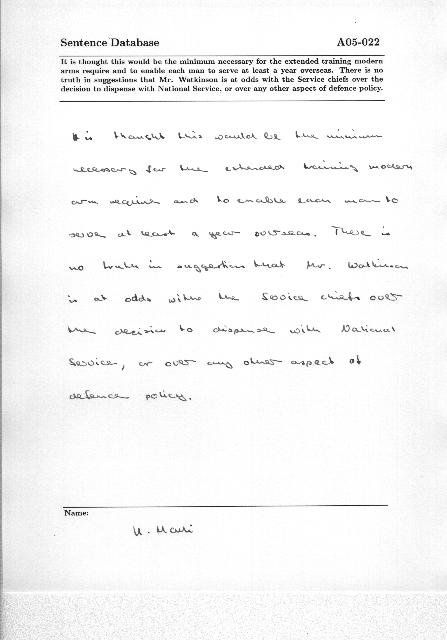 Sentence Database A05-022
It is thought this would be the minimum necessary for the extended training modern
arms require and to enable each man to serve at least a year overseas. There is no
truth in suggestions that Mr. Watkinson is at odds with the Service chiefs over the
decision to dispense with National Service, or over any other aspect of defence policy.
It is thought this would be the minimum
necessary for the extended training modern
arm require and to enable each man to
serve at least a year overseas. There is
no truth in suggestion that Mr. Watkinson
is at odds withe the Service chiefs over
the decision to dispense with National
Service, or over any other aspect of
defence policy.
Name: